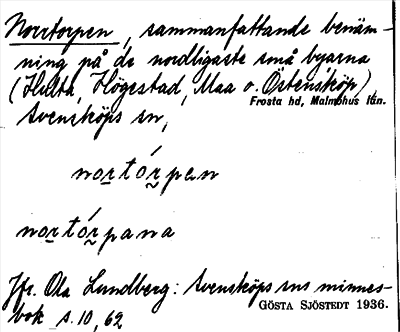 Norrtorpen, sammanfattande benäm-
ning på de nordligaste små byarna
(Hulta, Högestad, Maa o. Östensköp),
Frosta hd, Malmöhus län.
Svensköps sn,
nortórpen
nortórpana
Jfr. Ola Lundberg: Svensköps sns minnes-
bok s. 10, 62
GÖSTA SJÖSTEDT 1936.